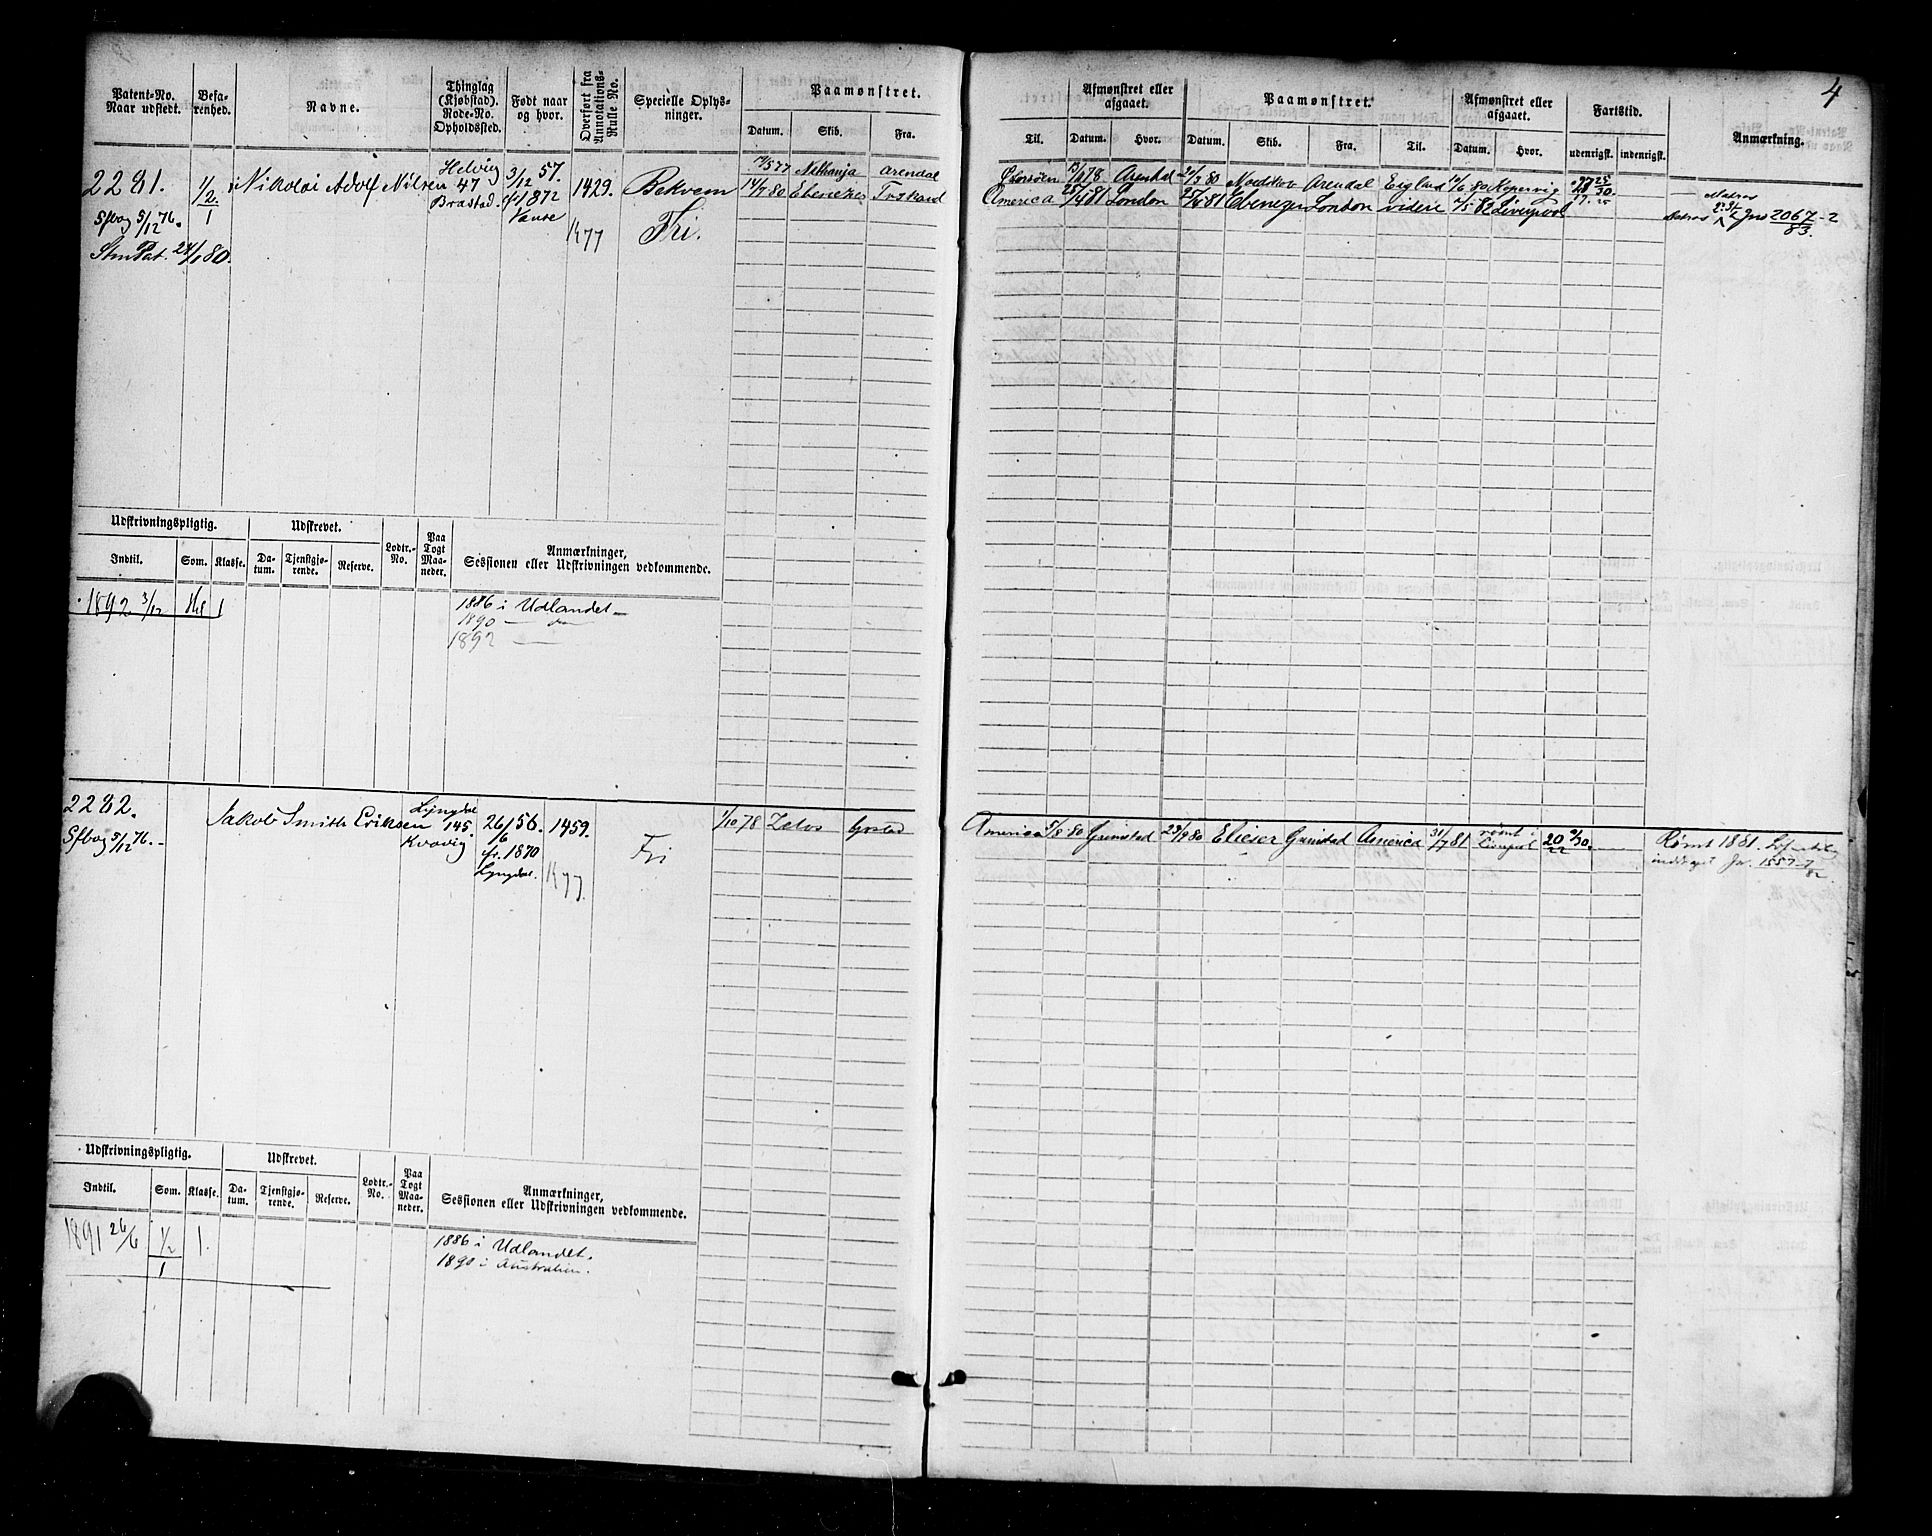 4
Patent-No. Naar udstedt.
Befa-renhed.
Navne.
Thinglag (Kjøbstad). Rode-No. Opholdssted.
Født naar og hvor.
Overført fra Annotations-Rulle No.
Specielle Oplys-ninger.
Paamønstret.
Datum.
Skib.
Fra.
Til.
Afmønstret eller afgaaet.
Datum.
Hvor.
Paamønstret.
Datum.
Skib.
Fra.
Til.
Afmønstret eller afgaaet.
Datum.
Hvor.
Fartstid.
udenrigst.
indenrigst.
Anmærkning.
2281.
Sfbog 5/12 76.
StmPat. 24/1 80.
1/2.
1
Nikolai Adolf Nilsen
Helvig
47
Brastad.
3/12 57.
1872
Vanse
1429.
1/1 77
Bekvem
Fri.
Nethanja Arendal
14/7 80 Ebenezer
America 25/4 81 London 25/4 81 Ebenezer London videre 7/5 82 Liverpool
13/1 78 Arendal
Arendal
2067-2
83.
Udskrivningspligtig.
Udskrevet.
Lodtr.-No.
Paa Togt Maa-neder.
Anmærkninger, Sessionen eller Udskrivningen vedkommende.
Indtil.
Som.
Klasse.
Da-tum.
Tjenstgjø-rende.
Reserve.
1892 3/12
1
1886 i Udlandet -
1890 -
1892 -
2282.
Sfbog 5/12 76.-
Jakob Smith Eriksen
Lyngdal
145.
Kvavig
26/6 56.
fr. 1870
Lyngdal.
1459.
1/1 77.
Fri
1/10 78 Zelos
America 5/8 80 Grimstad 23/9 80 Elieser Grimstad America 31/7 81 rømt i Liverpool
20
22
Rømt 1881.
inddraget Jr. 1557-1
82
Udskrivningspligtig.
Udskrevet.
Lodtr.-No.
Paa Togt Maa-neder.
Anmærkninger, Sessionen eller Udskrivningen vedkommende.
Indtil.
Som.
Klasse.
Da-tum.
Tjenstgjø-rende.
Reserve.
1891 26/6
1/2
1
1.
1886 i Udlandet.
1890 i Australien.